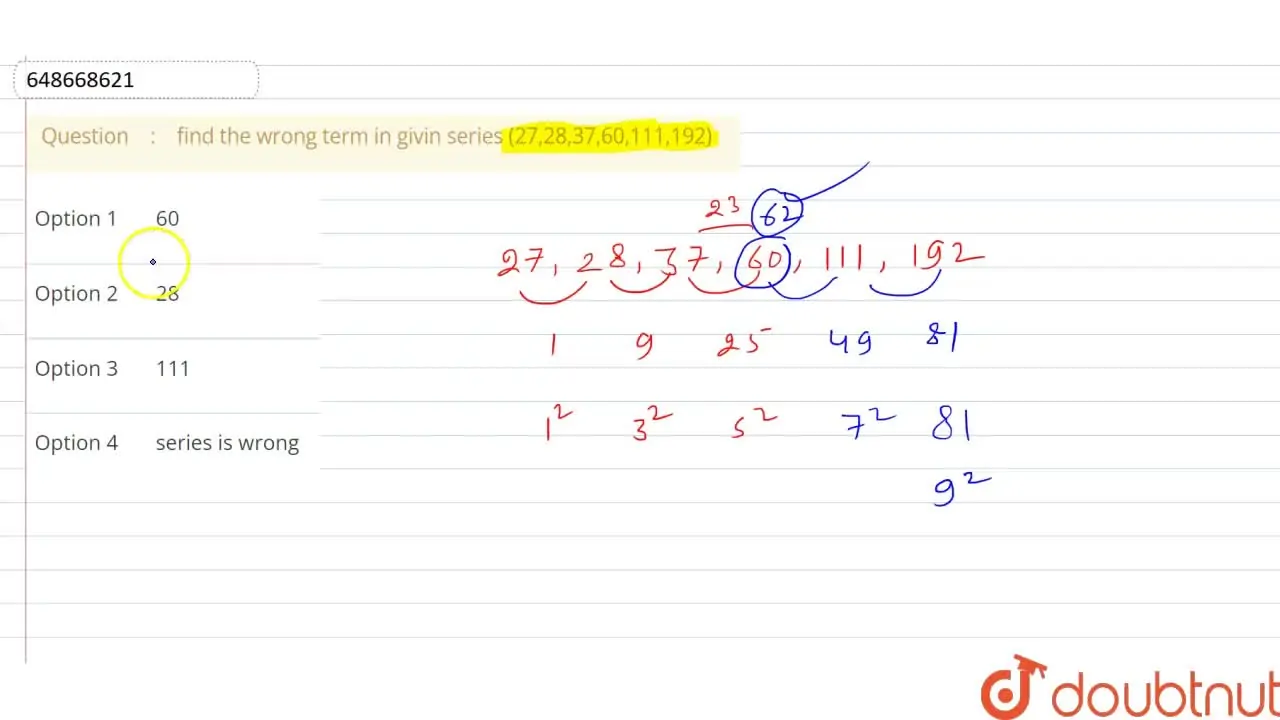 648668621
Question : find the wrong term in givin series (27,28,37,60,111,192)
Option 1 60
Option 2 28
Option 3 111
Option 4 series is wrong
23 62
27, 28, 37, 60, 111, 192
1 9 25 49 81
1² 3² 5² 7² 81
9²
doubtnut